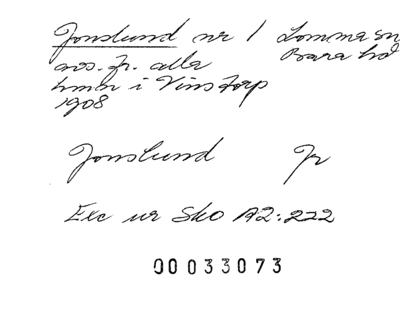 Jonslund nr 1 Lomma sn
avs. fr. alla Bara hd
hmn i Vinstorp
1908
Jonslund Jr
Exc ur Sko A2:222
00033073